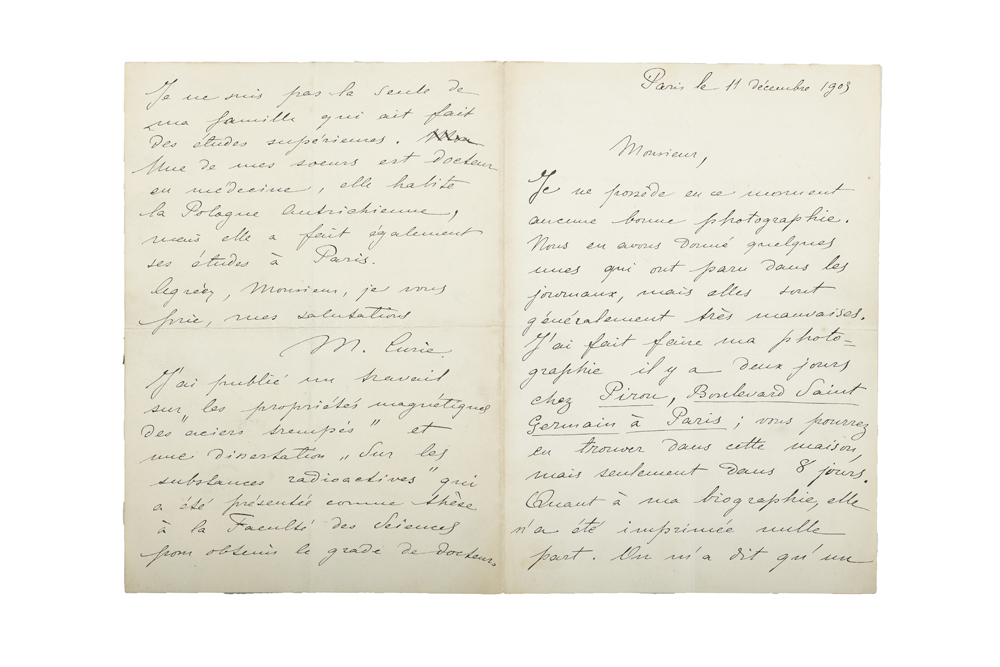 Paris le 11 décembre 1903
Monsieur,
Je ne possède en ce moment
aucune bonne photographie.
Nous en avons donné quelques
unes qui ont paru dans les
journaux, mais elles sont
généralement très mauvaises.
J'ai fait faire ma photo-
graphie il y a deux jours
chez Pirou, Boulevard Saint
Germain à Paris ; vous pourrez
en trouver dans cette maison,
mais seulement dans 8 jours.
Quant à ma biographie, elle
n'a été imprimée nulle
part. On m'a dit qu'un
Je ne suis pas la seule de
ma famille qui ait fait
des études supérieures.
Une de mes soeurs est docteur
en médecine, elle habite
la Pologne Autrichienne,
mais elle a fait également
ses études à Paris.
Agréez, Monsieur, je vous
prie, mes salutations
M. Curie.
J'ai publié un travail
sur „les propriétés magnétiques
des aciers trempés" et
une dissertation „Sur les
substances radioactives" qui
a été présentée comme thèse
à la Faculté des Sciences
pour obtenir le grade de docteur.